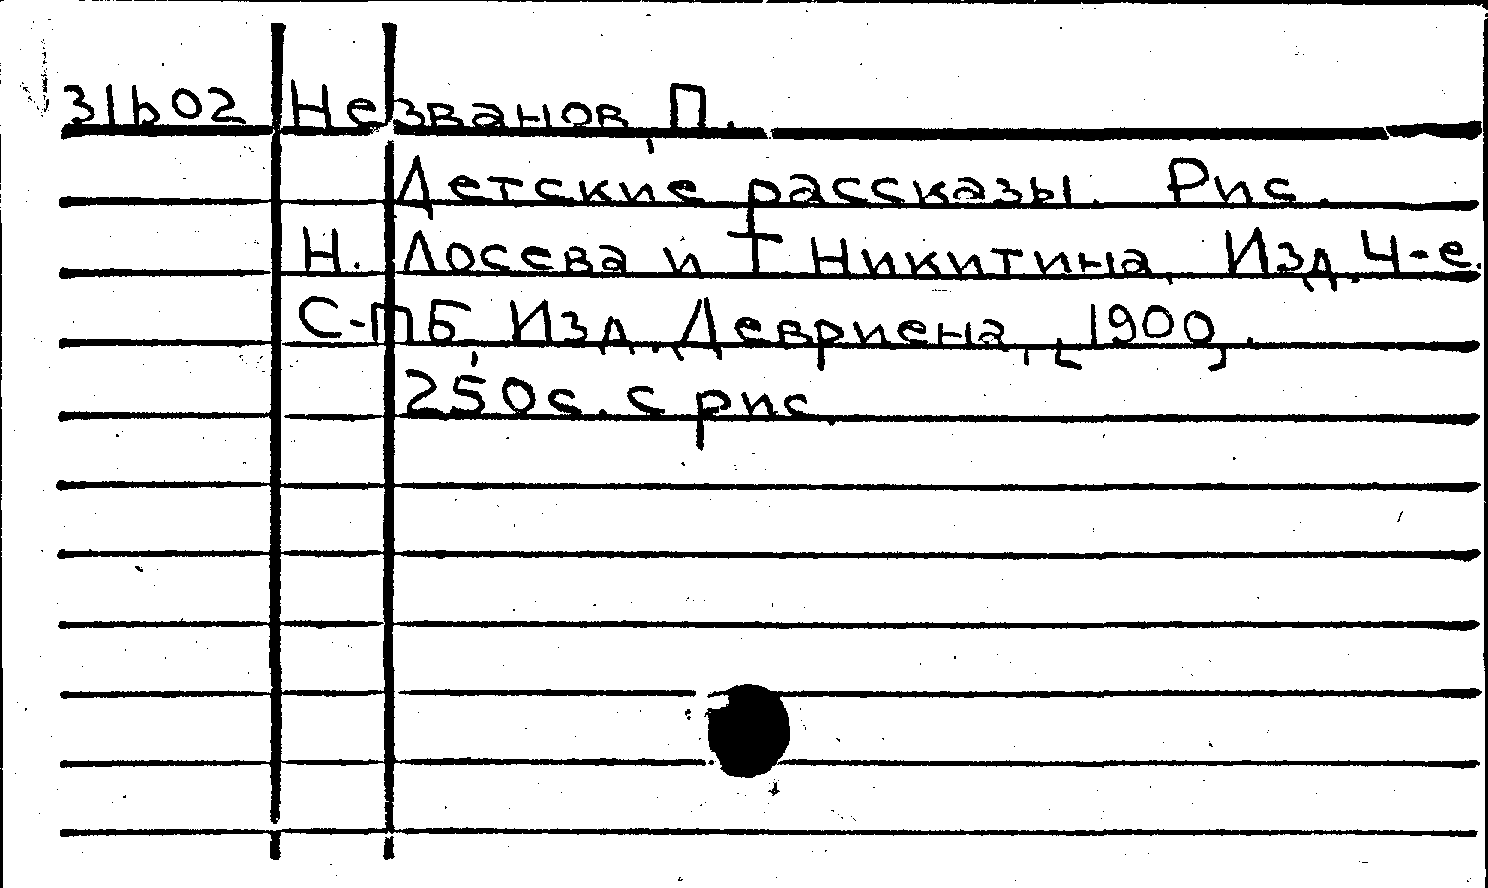 31b02 Незванов, П.
Детские рассказы. Рис.
Н. Лосева и Т Никитина. Изд. 4-е.
С-ПБ, Изд. Девриена, [1900].
250с. с рис.